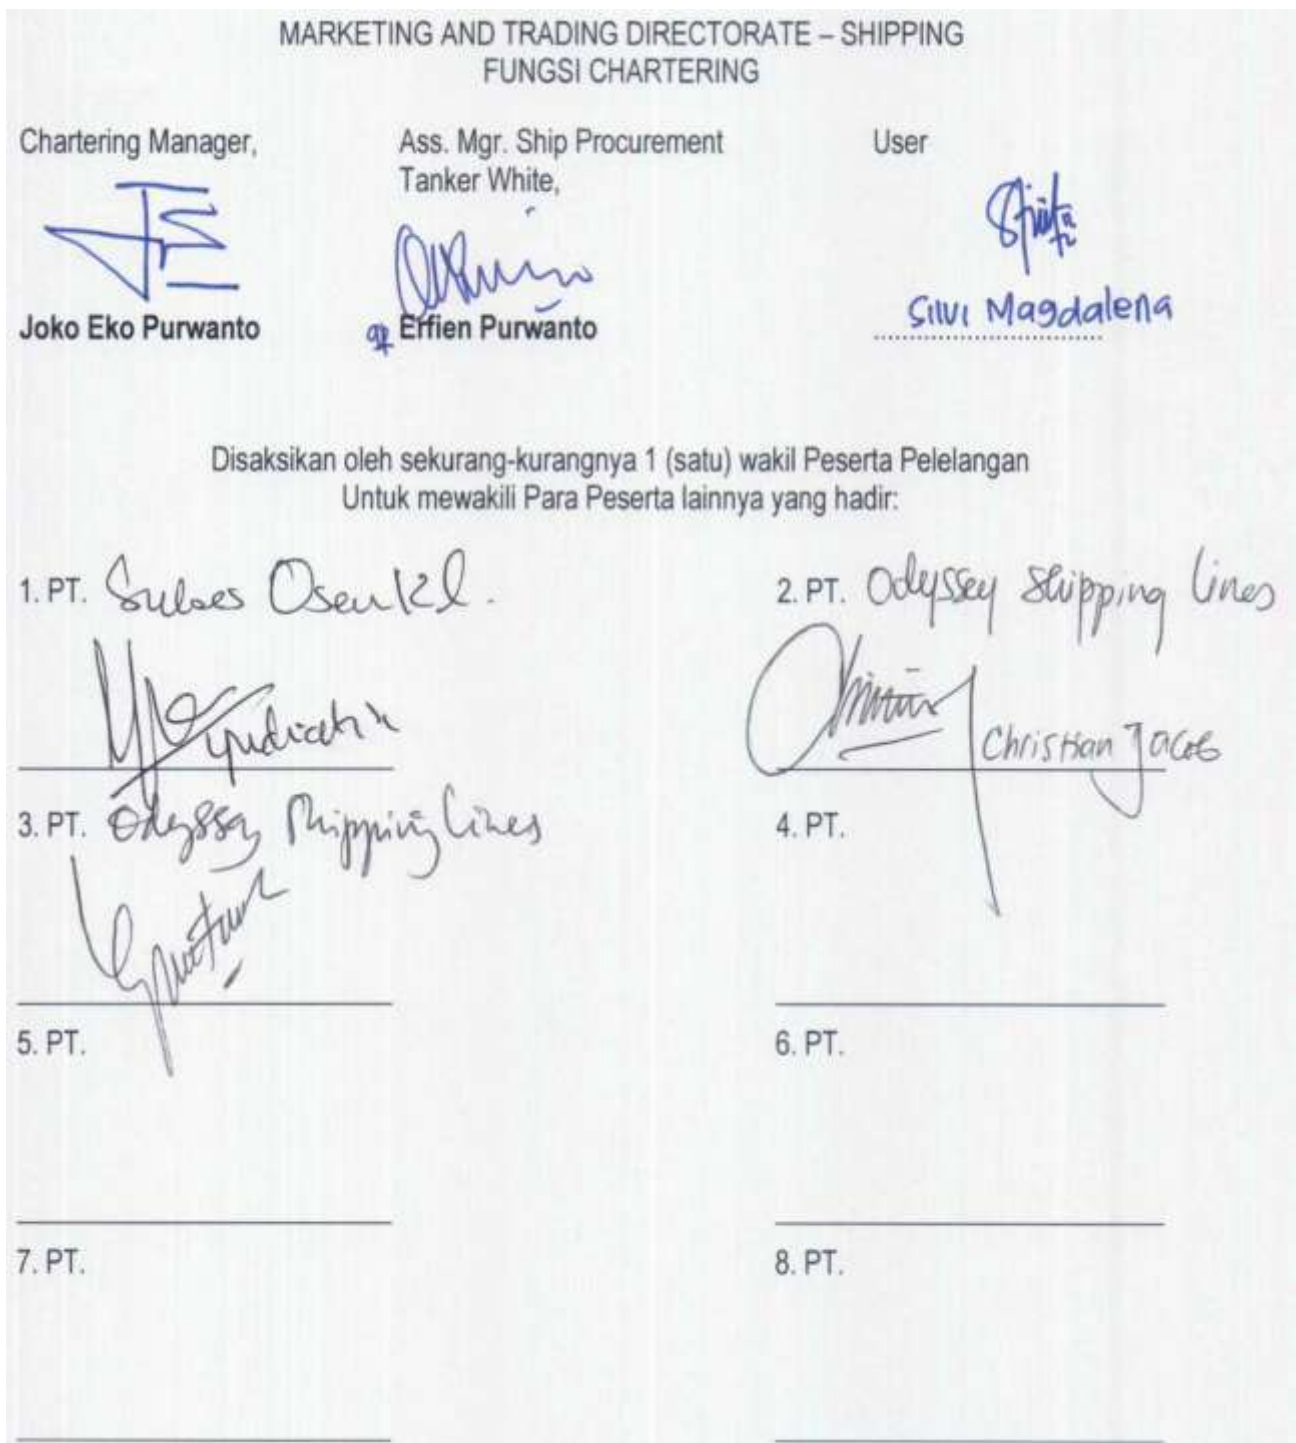 MARKETING AND TRADING DIRECTORATE – SHIPPING
FUNGSI CHARTERING
Chartering Manager,
Ass. Mgr. Ship Procurement
Tanker White,
User
Joko Eko Purwanto
Effien Purwanto
Silvi Magdalena
Disaksikan oleh sekurang-kurangnya 1 (satu) wakil Peserta Pelelangan
Untuk mewakili Para Peserta lainnya yang hadir:
1. PT. Sukses Osean
2. PT. Odyssey Shipping Lines
Christian Jacob
3. PT. Odyssey Shipping Lines
4. PT.
5. PT.
6. PT.
7. PT.
8. PT.